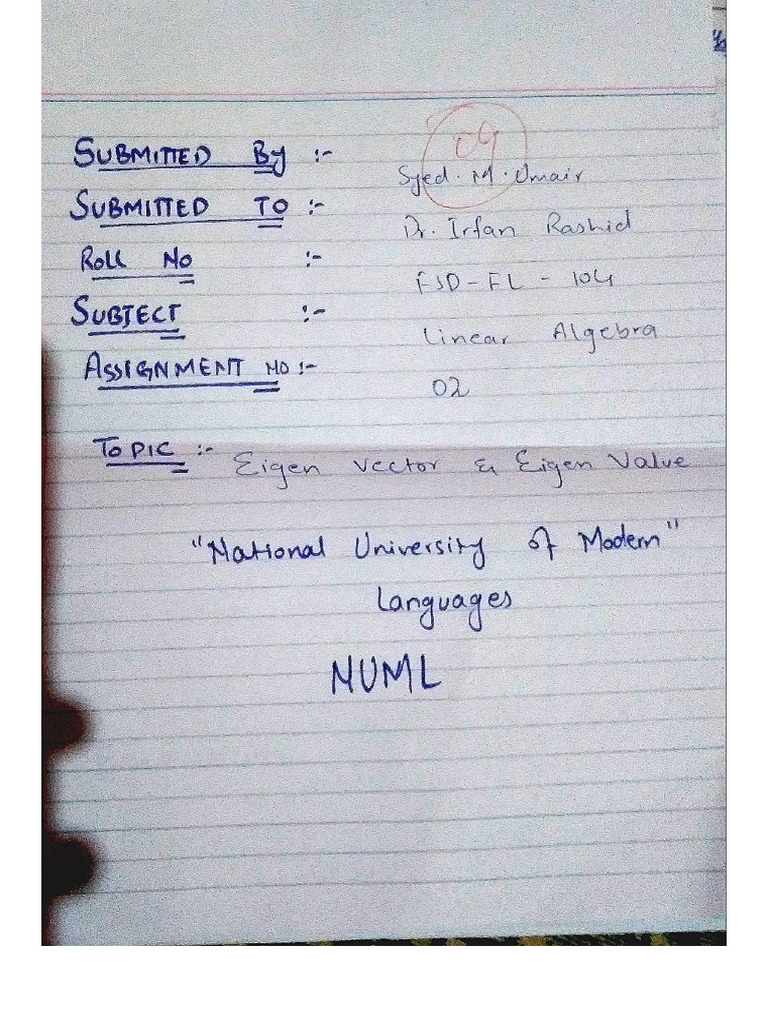 04
SUBMITTED BY :- Syed . M . Umair
SUBMITTED TO :- Dr. Irfan Rashid
ROLL NO :- FJD-FL - 104
SUBJECT :- Linear Algebra
ASSIGNMENT NO :- 02
TOPIC :- Eigen Vector & Eigen Value
"National University of Modern"
Languages
NUML